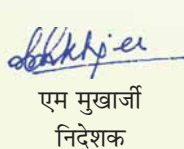 एम मुखार्जी
निदेशक